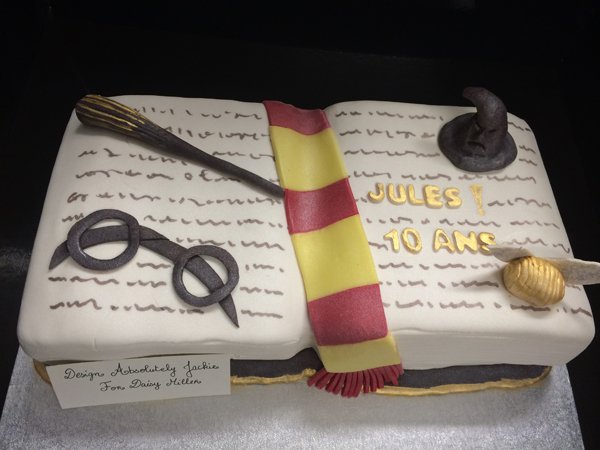 JULES !
10 ANS
Design Absolutely Jackie
For Daisy Miller